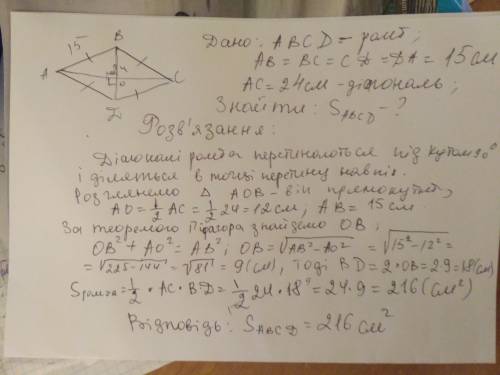 B
15
A
24
O
C
D
Дано: ABCD – ромб;
AB = BC = CD = DA = 15 см
AC = 24 см – діагональ;
Знайти: S ABCD – ?
Розв'язання:
Діагоналі ромба перетинаються під кутом 90°
і діляться в точці перетину навпіл.
Розглянемо Δ AOB – він прямокутний,
AO = 1/2 AC = 1/2 24 = 12 см, AB = 15 см
За теоремою Піфагора знайдемо OB:
OB² + AO² = AB²; OB = √AB² - AO² = √15² - 12² =
= √225 - 144 = √81 = 9 (см), тоді BD = 2 · OB = 2·9 = 18 (см)
S ромба = 1/2 · AC · BD = 1/2 24 · 18 = 24 · 9 = 216 (см²)
Відповідь: S ABCD = 216 см²